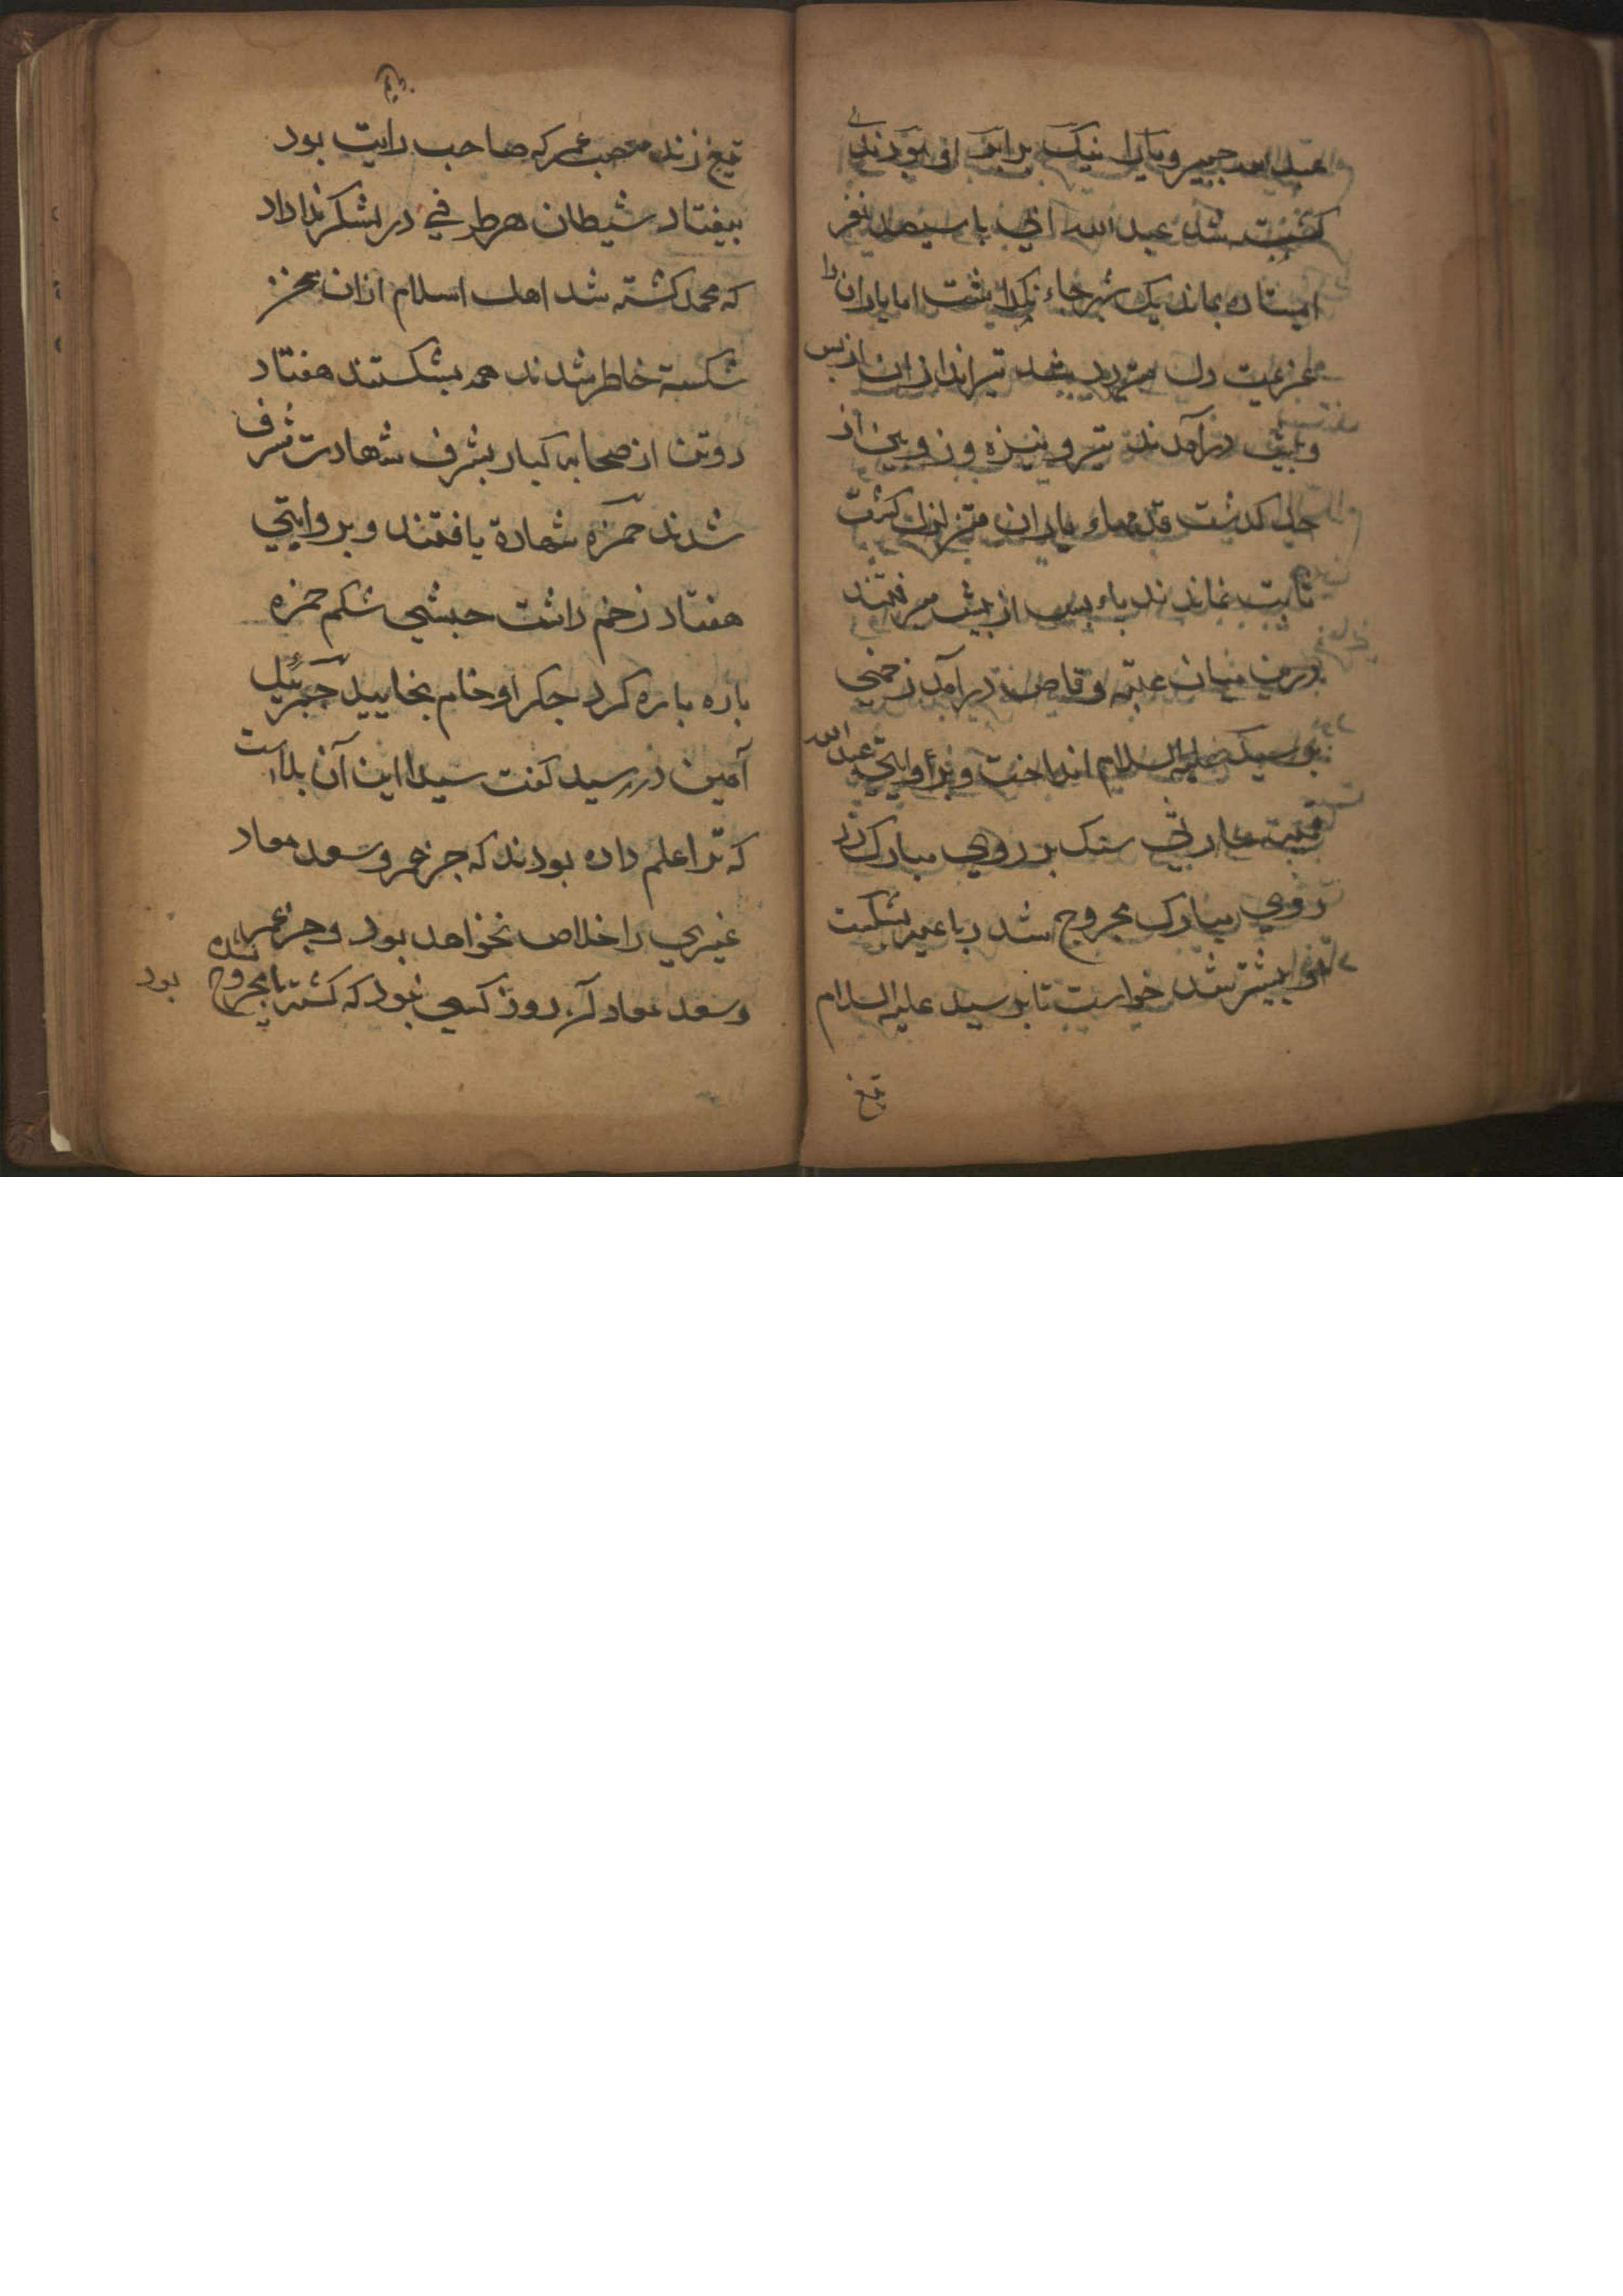 عبد الله جبیر و یارانیک برابر او بودند
کشته شد عبد الله ابی با سیصد نفر
ایستاده بماند یک تیر جاء نکذاشت اما یاران را
عزیمت دل متردد شد تیراندازان از بس
و پیش درآمدند تیر و نیزه و زوبین از
حد کذشت قدمهاء یاران متزلزل کشت
ثابت نماندند باء بس از پیش میرفتند
درین میان عتبه وقاص درآمد زخمی
بر سید علیه السلام انداخت و بروایتی عبد الله
سنک بر روی مبارک زد
روی مبارک مجروح شد رباعیه بشکست
پیشتر شد خواست تا بر سید علیه السلام
تیغ
تیغ زند مصعب عمیر که صاحب رایت بود
بیفتاد شیطان هر طرفی در لشکر ندا داد
که محمد کشته شد اهل اسلام ازان
شکسته خاطر شدند همه بشکستند هفتاد
دو تن از صحابه کبار بشرف شهادت مشرف
شدند حمزه شهادة یافتند و بروایتی
هفتاد زخم داشت حبشی شکم حمزه
باره باره کرد جکر او خام بخایید جبرئیل
آمین در رسید کفت سیدا این آن بلا است
که ترا علم داده بودند که جز عمر و سعد معاد
غیری را خلاص نخواهد بود و جز عمر
و سعد معاد آن روز کسی نبود که کشته یا مجروح شده
بود